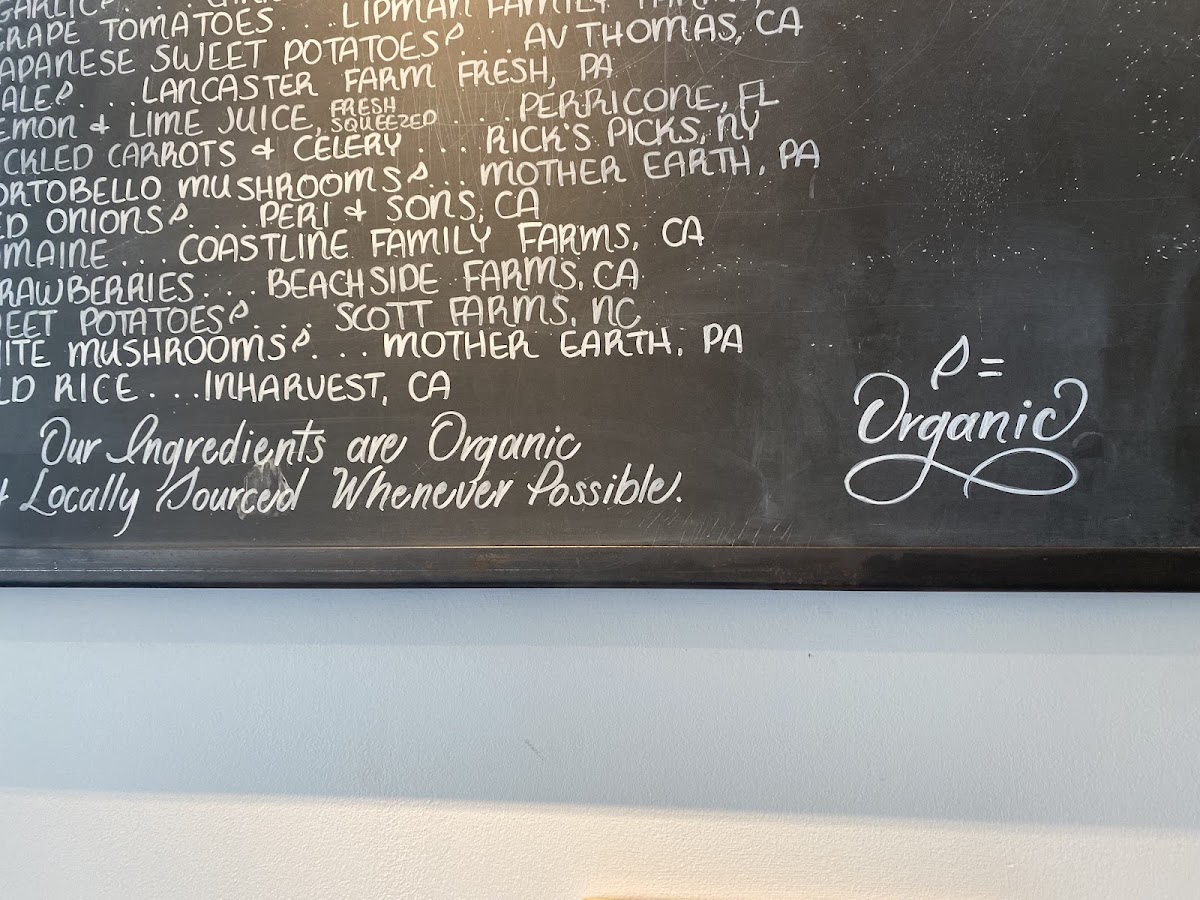 GARLIC
GRAPE TOMATOES...LIPMAN FAMILY
APANESE SWEET POTATOES...AV THOMAS, CA
ALE....LANCASTER FARM FRESH, PA
EMON & LIME JUICE, FRESH SQUEEZED ....PERRICONE, FL
ICKLED CARROTS & CELERY ...RICK'S PICKS, NY
ORTOBELLO MUSHROOMS...MOTHER EARTH, PA
ED ONIONS....PERI & SONS, CA
OMAINE...COASTLINE FAMILY FARMS, CA
RAWBERRIES...BEACHSIDE FARMS, CA
EET POTATOES....SCOTT FARMS, NC
HITE MUSHROOMS...MOTHER EARTH, PA
LD RICE...INHARVEST, CA
=
Organic
Our Ingredients are Organic
+ Locally Sourced Whenever Possible.